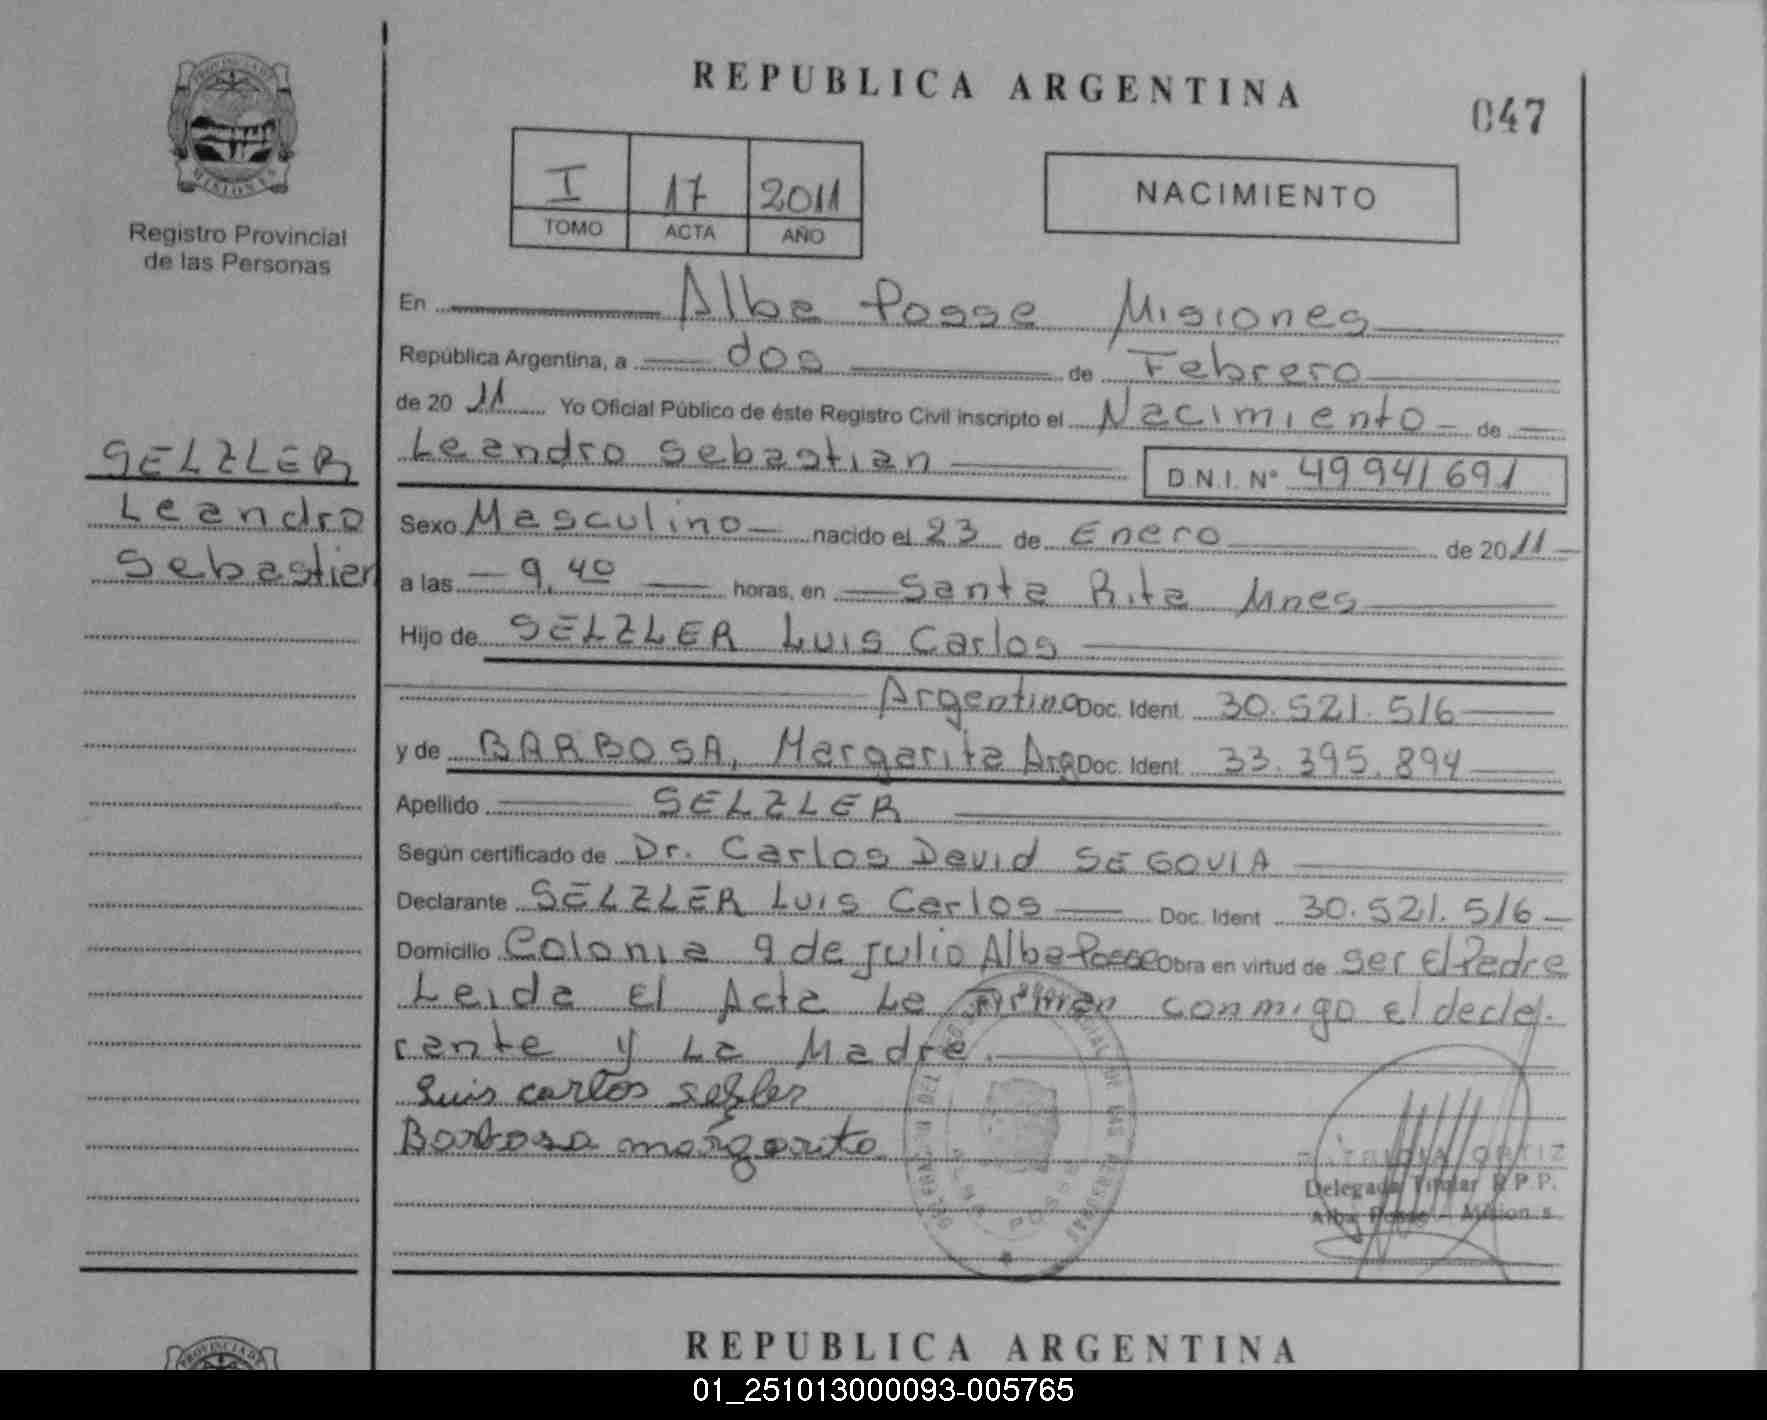 REPUBLICA ARGENTINA
047
PROVINCIA DE
MISIONES
Registro Provincial
de las Personas
I 17 2011
TOMO ACTA AÑO
NACIMIENTO
En Alba Posse Misiones
República Argentina, a dos de Febrero
de 20 11 Yo Oficial Público de éste Registro Civil inscripto el Nacimiento de
Leandro Sebastian D.N.I. Nº 49941691
SELZLER
Leandro
Sebastian
Sexo Masculino nacido el 23 de Enero de 2011
a las 9,40 horas, en Santa Rita Mnes
Hijo de SELZLER Luis Carlos
Argentino Doc. Ident. 30.521.516
y de BARBOSA, Margarita Arg Doc. Ident. 33.395.894
Apellido SELZLER
Según certificado de Dr. Carlos David SEGOVIA
Declarante SELZLER Luis Carlos Doc. Ident 30.521.516
Domicilio Colonia 9 de Julio Alba Posse Obra en virtud de ser El Padre
Leida El Acta La firman conmigo el decla-
rante y La Madre.
Luis carlos selzler
Barbosa margarita
PATRICIA ORTIZ
Delegada Titular R.P.P.
Alba Posse - Misiones
REPUBLICA ARGENTINA
PROVINCIA DE
01_251013000093-005765